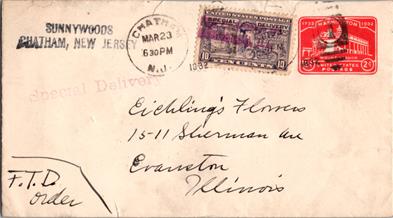 SUNNYWOODS
CHATHAM, NEW JERSEY
CHATHAM
MAR 23
6 30 PM
1932
N.J.
UNITED STATES POSTAGE
SPECIAL DELIVERY
10 CENTS 10
1732 WASHINGTON 1932
UNITED STATES
POSTAGE
2¢
Special Delivery
Eichling's Flowers
15-11 Sherman Ave
Evanston
Illinois
F.T.D.
order